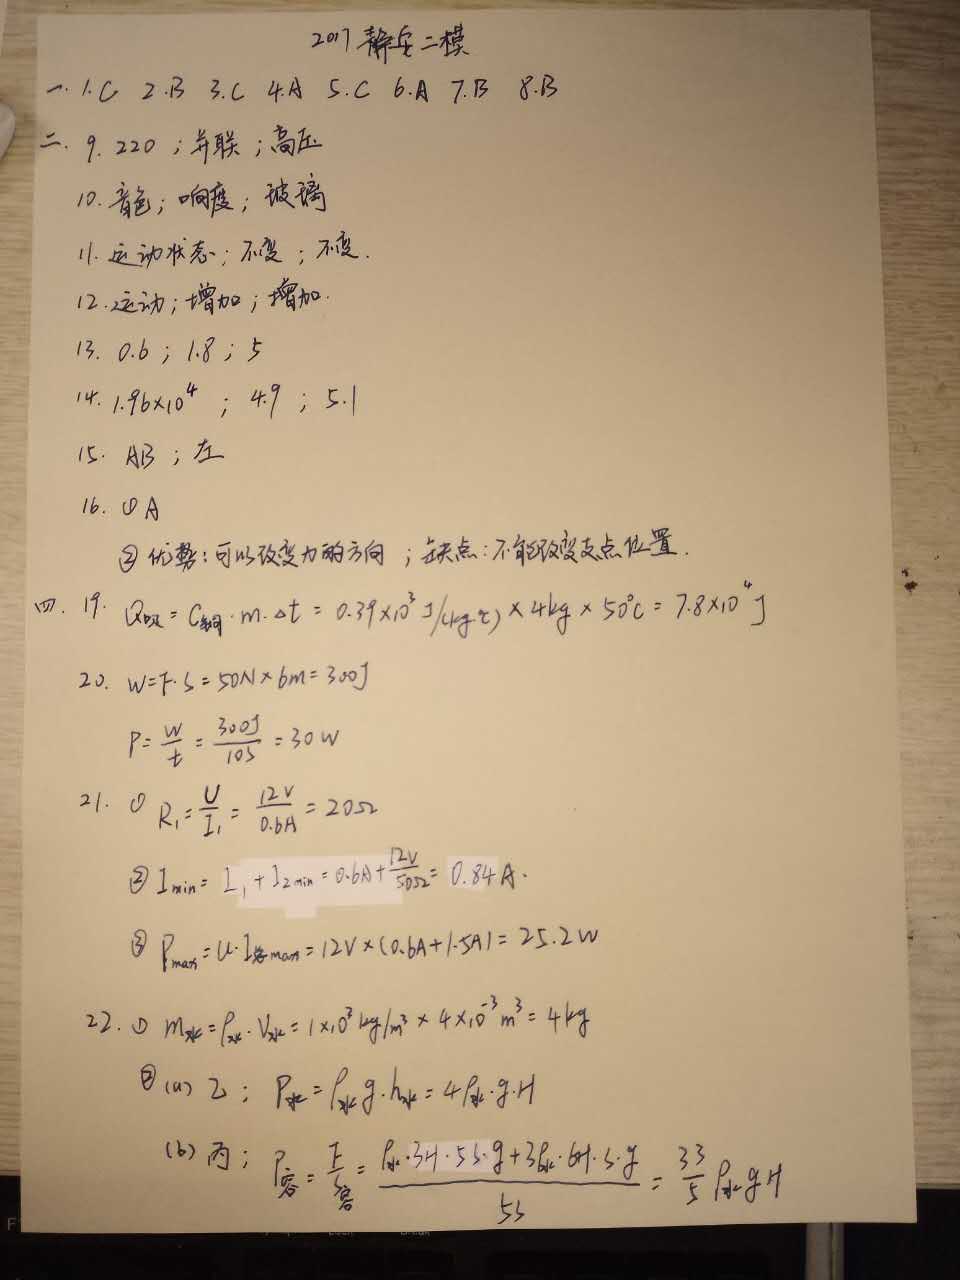 2017 静安二模
一. 1.C 2.B 3.C 4.A 5.C 6.A 7.B 8.B
二. 9. 220 ; 并联 ; 高压
10. 音色 ; 响度 ; 玻璃
11. 运动状态 ; 不变 ; 不变.
12. 运动 ; 增加 ; 增加.
13. 0.6 ; 1.8 ; 5
14. 1.96×10⁴ ; 4.9 ; 5.1
15. AB ; 左
16. ① A
② 优势: 可以改变力的方向 ; 缺点: 不能改变支点位置.
四. 19. Q吸 = C铜·m·Δt = 0.39×10³ J/(kg℃) × 4kg × 50℃ = 7.8×10⁴ J
20. W=F·S=50N×6m=300J
P= W/t = 300J/10S = 30W
21. ① R₁= U/I₁ = 12V/0.6A = 20Ω
② Imin= I₁+I₂min = 0.6A + 12V/50Ω = 0.84A.
③ Pmax=U·I总max=12V×(0.6A+1.5A)=25.2W
22. ① m水=ρ水·V水=1×10³kg/m³×4×10⁻³m³=4kg
② (a) 乙 ; P水=ρ水g·h水=4ρ水·g·H
(b) 丙 ; P容= F/S容 = (ρ水·3H·5S·g+3ρ水·6H·S·g)/5S = 33/5 ρ水gH
Break